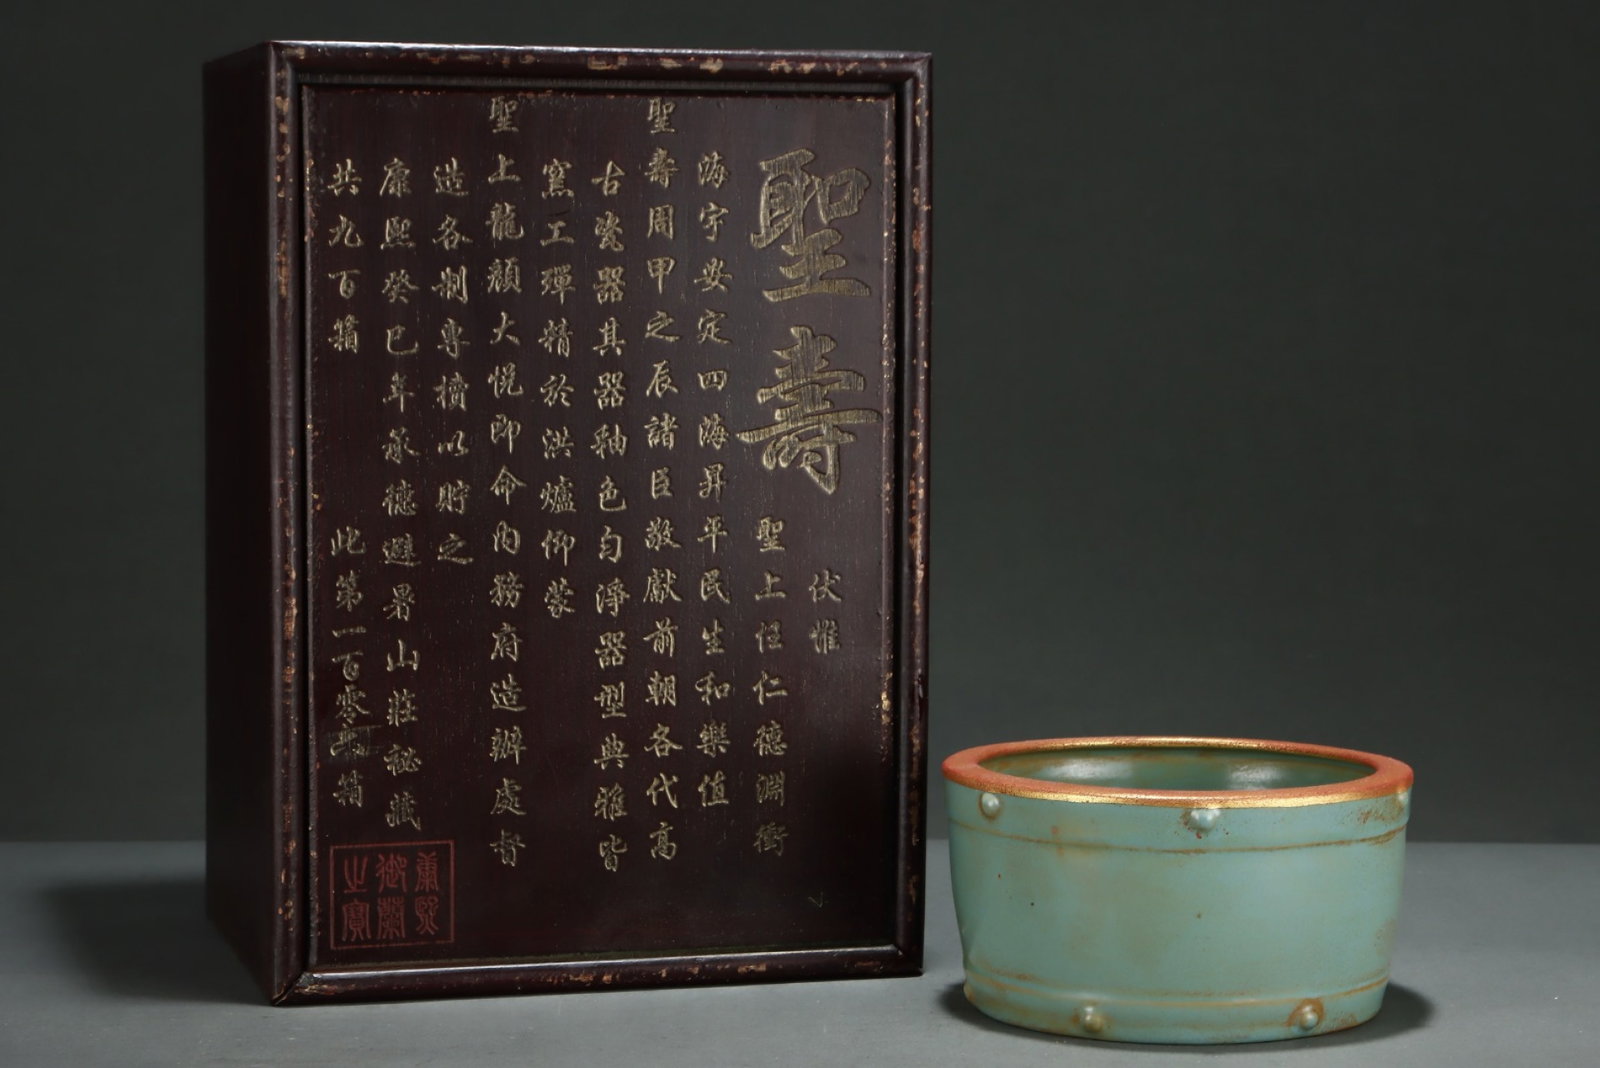 聖壽
伏惟
聖上任仁德淵衝
海宇安定四海昇平民生和樂值
聖壽周甲之辰諸臣敬獻前朝各代高
古瓷器其器釉色勻淨器型典雅皆
窯工殫精於洪爐仰蒙
聖上龍顏大悅即命內務府造辦處督
造各制專櫝以貯之
康熙癸巳年承德避暑山莊祕藏
共九百箱
此第一百零箱
康熙
御覽
之寶